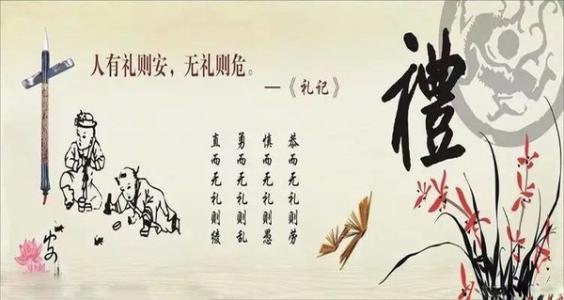 人有礼则安，无礼则危。
—《礼记》
禮
恭而无礼则劳
慎而无礼则愚
勇而无礼则乱
直而无礼则绫